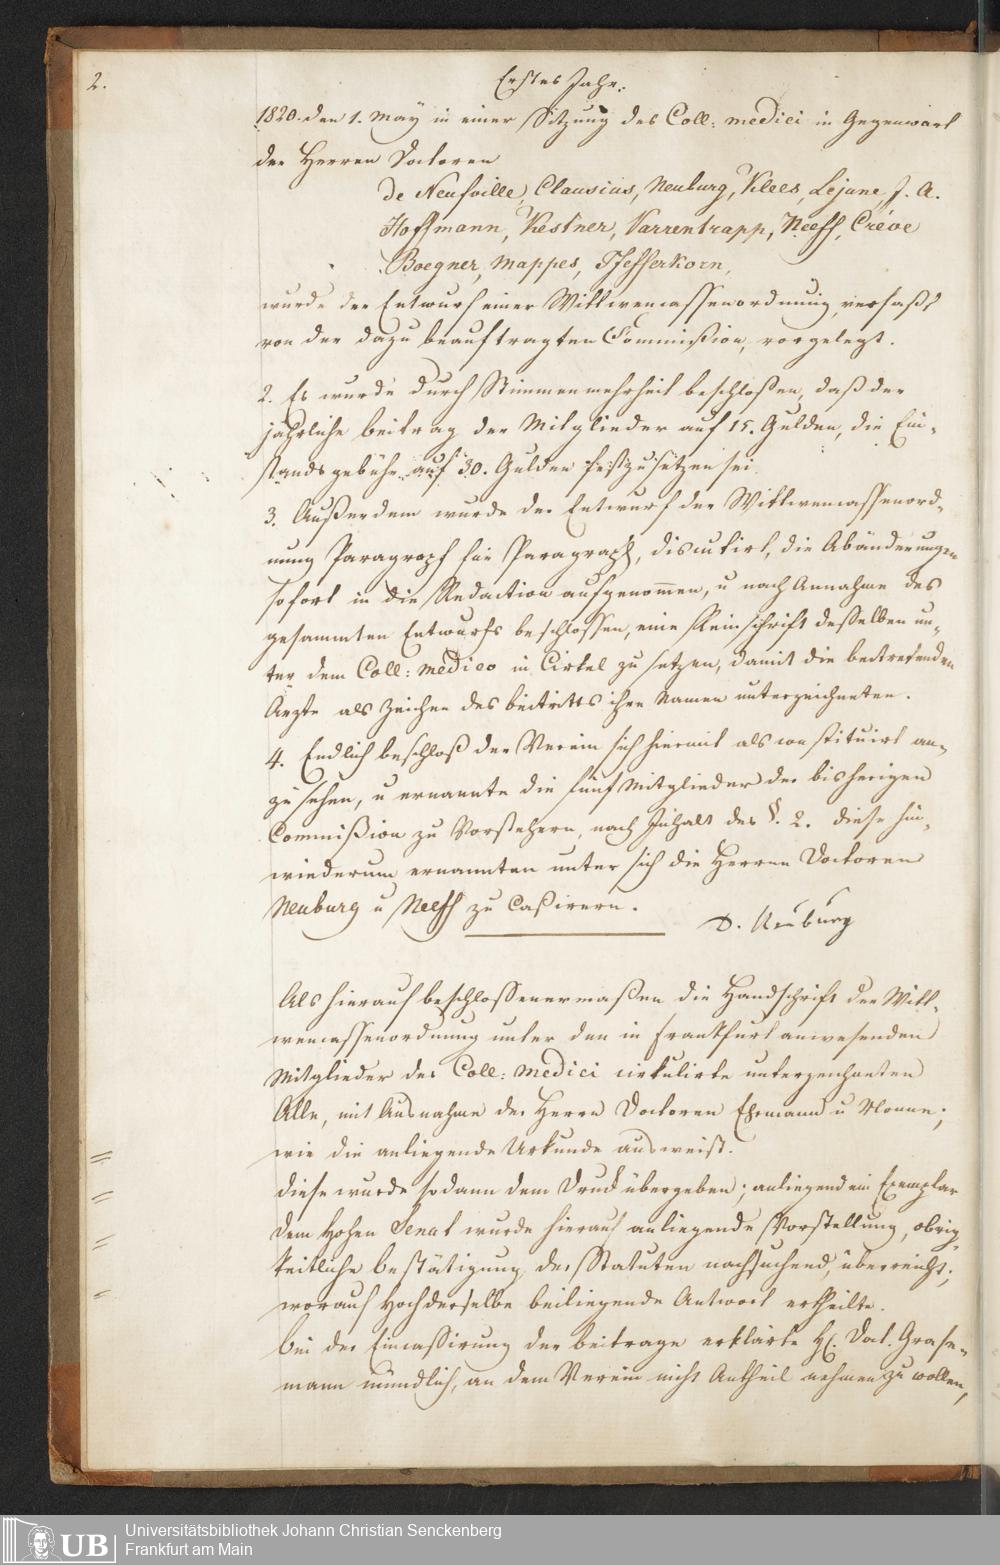 2.
Erstes Jahr.
1820. den 1. May in einer Sitzung des Coll: medici in Gegenwart
der Herren Doctoren
de Neufville, Clausius, Neuburg, Klees, Lejune, J. A.
Hoffmann, Kestner, Varrentrapp, Neeff, Crève
Boegner, Mappes, Pfefferkorn,
wurde der Entwurf einer Wittwencassenordnung, verfaßt
von der dazu beauftragten Commißion, vorgelegt.
2. Es wurde durch Stimmenmehrheit beschloßen, daß der
jährliche beitrag der Mitglieder auf 15. Gulden, die Ein-
standsgebühr auf 30. Gulden festzusetzen sei.
3. Außerdem wurde der Entwurf der Wittwencassenord-
nung Paragraph für Paragraph, discutirt, die Abänderungen
sofort in die Redaction aufgenom̅en, u nach Annahme des
gesammten Entwurfs beschlossen, eine Reinschrift desselben un-
ter dem Coll: medico in Cirkel zu setzen, damit die beitretenden
Ärzte als Zeichen des beitritts ihre Namen unterzeichneten.
4. Endlich beschloß der Verein sich hiermit als constituirt an-
zusehen, u ernannte die fünf Mitglieder der bisherigen
Commißion zu Vorstehern, nach Inhalt des §. 2. diese hin-
wiederum ernannten unter sich die Herren Doctoren
Neuburg u Neeff zu Caßirern.
D. Neuburg
Als hierauf beschlossenermaßen die Handschrift der Witt-
wencassenordnung unter den in Frankfurt anwesenden
Mitglieder des Coll: medici cirkulirte unterzeichneten
Alle, mit Ausnahme der Herrn Doctoren Ehrmann u Nonne;
wie die anliegende Urkunde ausweist.
Diese wurde sodann dem Druck übergeben; anliegend ein Exemplar
Dem Hohen Senat wurde hierauf anliegende Vorstellung, obrig-
keitliche bestätigung der Statuten nachsuchend, überreicht;
worauf Hochderselbe beiliegende Antwort ertheilte.
bei der Einkassirung der beitrage erklärte H. Doct. Grase-
mann mündlich, an dem Verein nicht Antheil nehmen zu wollen,
UB
Universitätsbibliothek Johann Christian Senckenberg
Frankfurt am Main